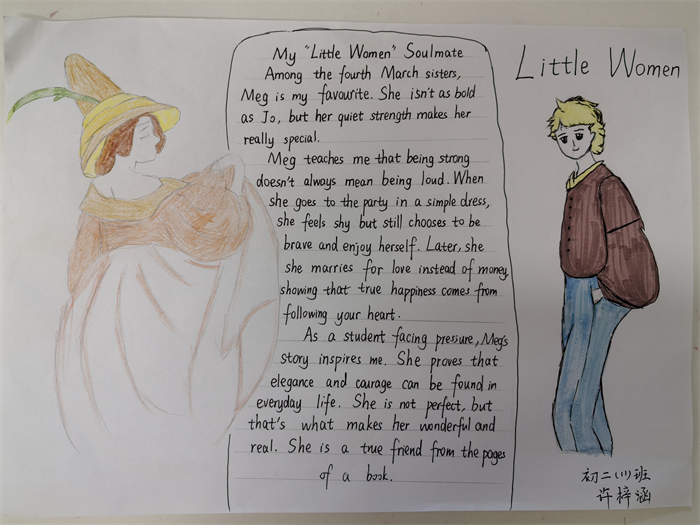 My "Little Women" Soulmate
Among the fourth March sisters,
Meg is my favourite. She isn't as bold
as Jo, but her quiet strength makes her
really special.
Meg teaches me that being strong
doesn't always mean being loud. When
she goes to the party in a simple dress,
she feels shy but still chooses to be
brave and enjoy herself. Later, she
she marries for love instead of money
showing that true happiness comes from
following your heart.
As a student facing pressure, Meg's
story inspires me. She proves that
elegance and courage can be found in
everyday life. She is not perfect, but
that's what makes her wonderful and
real. She is a true friend from the pages
of a book.
Little Women
初二(1)班
许梓涵